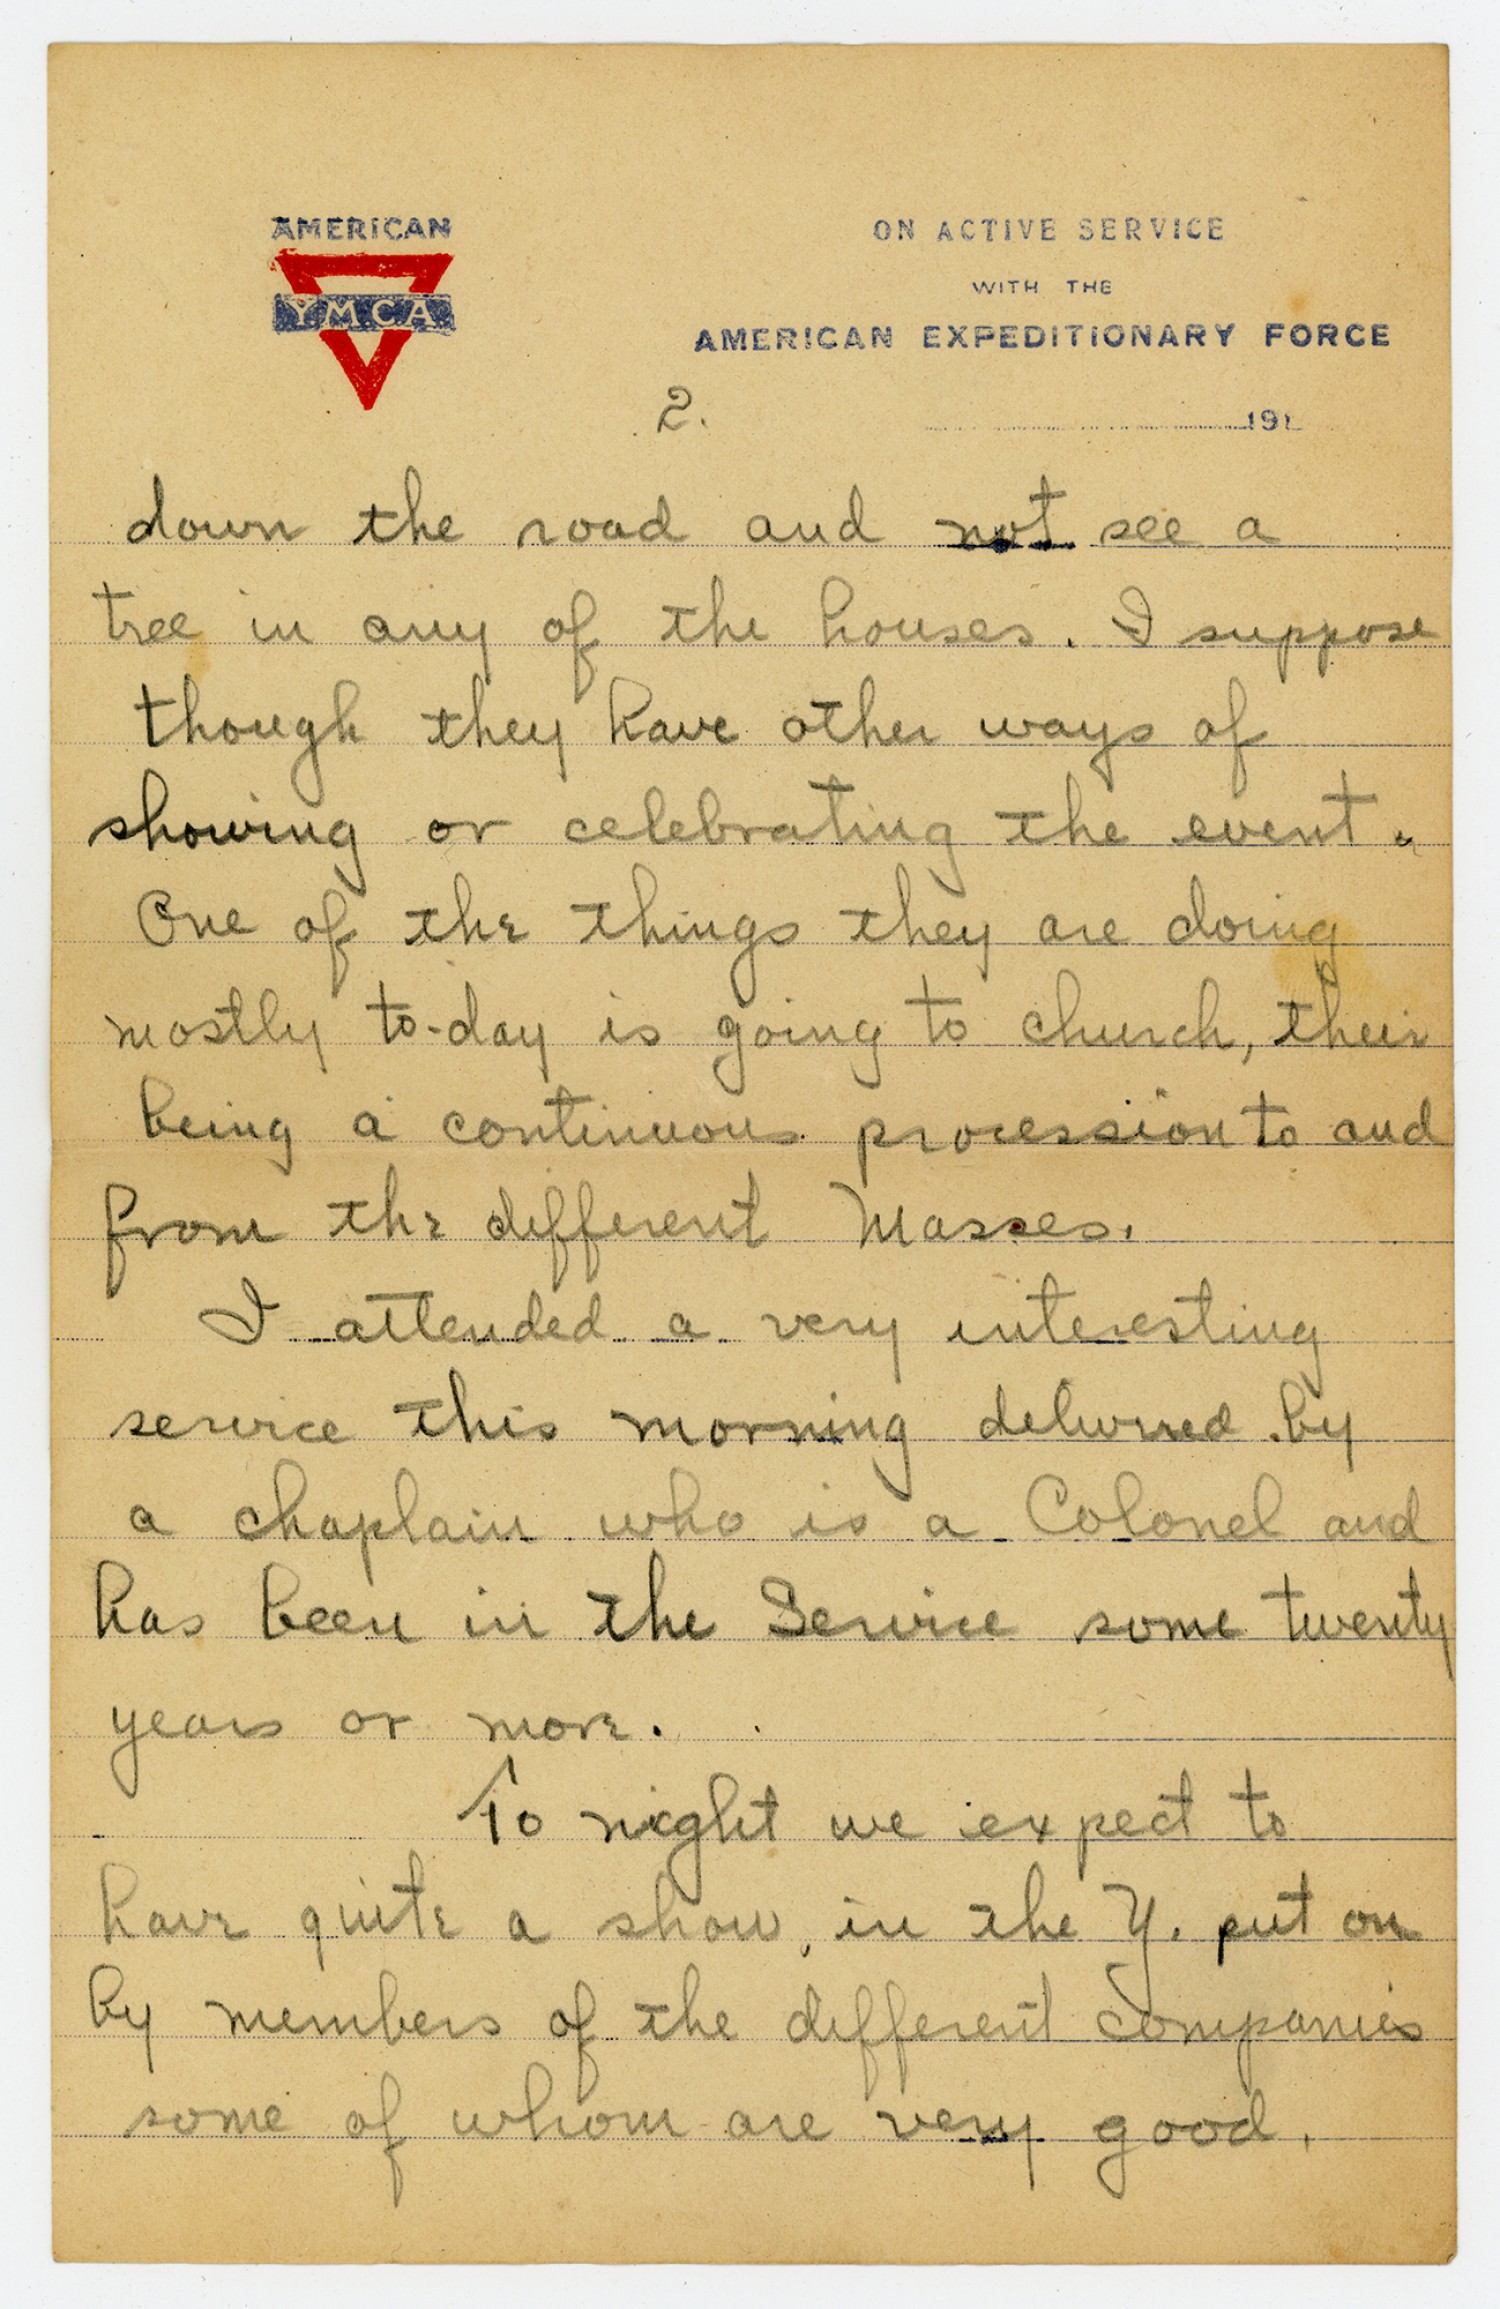 AMERICAN
YMCA
ON ACTIVE SERVICE
WITH THE
AMERICAN EXPEDITIONARY FORCE
2.
191
down the road and not see a
tree in any of the houses. I suppose
though they have other ways of
showing or celebrating the event.
One of the things they are doing
mostly to-day is going to church, their
being a continuous procession to and
from the different Masses.
I attended a very interesting
service this morning deliverred by
a chaplain who is a Colonel and
has been in the Service some twenty
years or more.
To night we expect to
have quite a show, in the Y. put on
by members of the different companies
some of whom are very good.